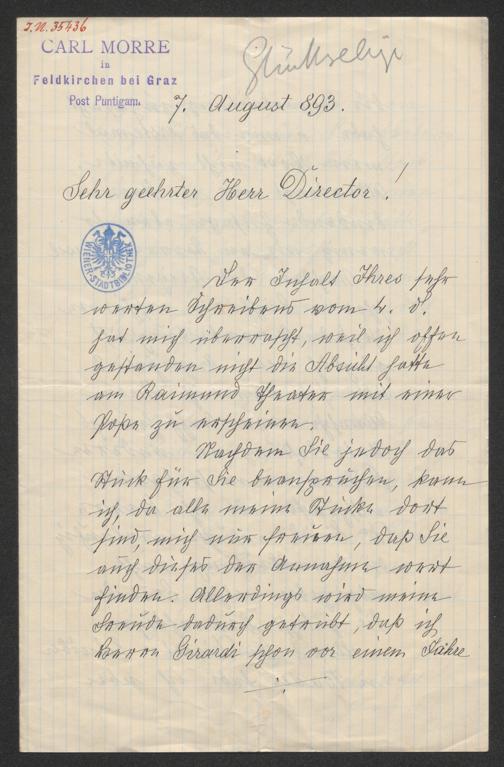 I.N. 35436
CARL MORRE
in
Feldkirchen bei Graz
Post Puntigam.
Glückselige
7. August 893.
Sehr geehrter Herr Director!
WIENER-STADTBIBLIOTHEK
Der Inhalt Ihres sehr
werten Schreibens vom 4. d.
hat mich überrascht, weil ich offen
gestanden nicht die Absicht hatte
am Raimund Theater mit einer
Posse zu erscheinen.
Nachdem Sie jedoch das
Stück für Sie beanspruchen, kann
ich, da alle meine Stücke dort
sind, mich nur freuen, daß Sie
auch dieses der Annahme wert
finden. Allerdings wird meine
Freude dadurch getrübt, daß ich
Herrn Girardi schon vor einem Jahre